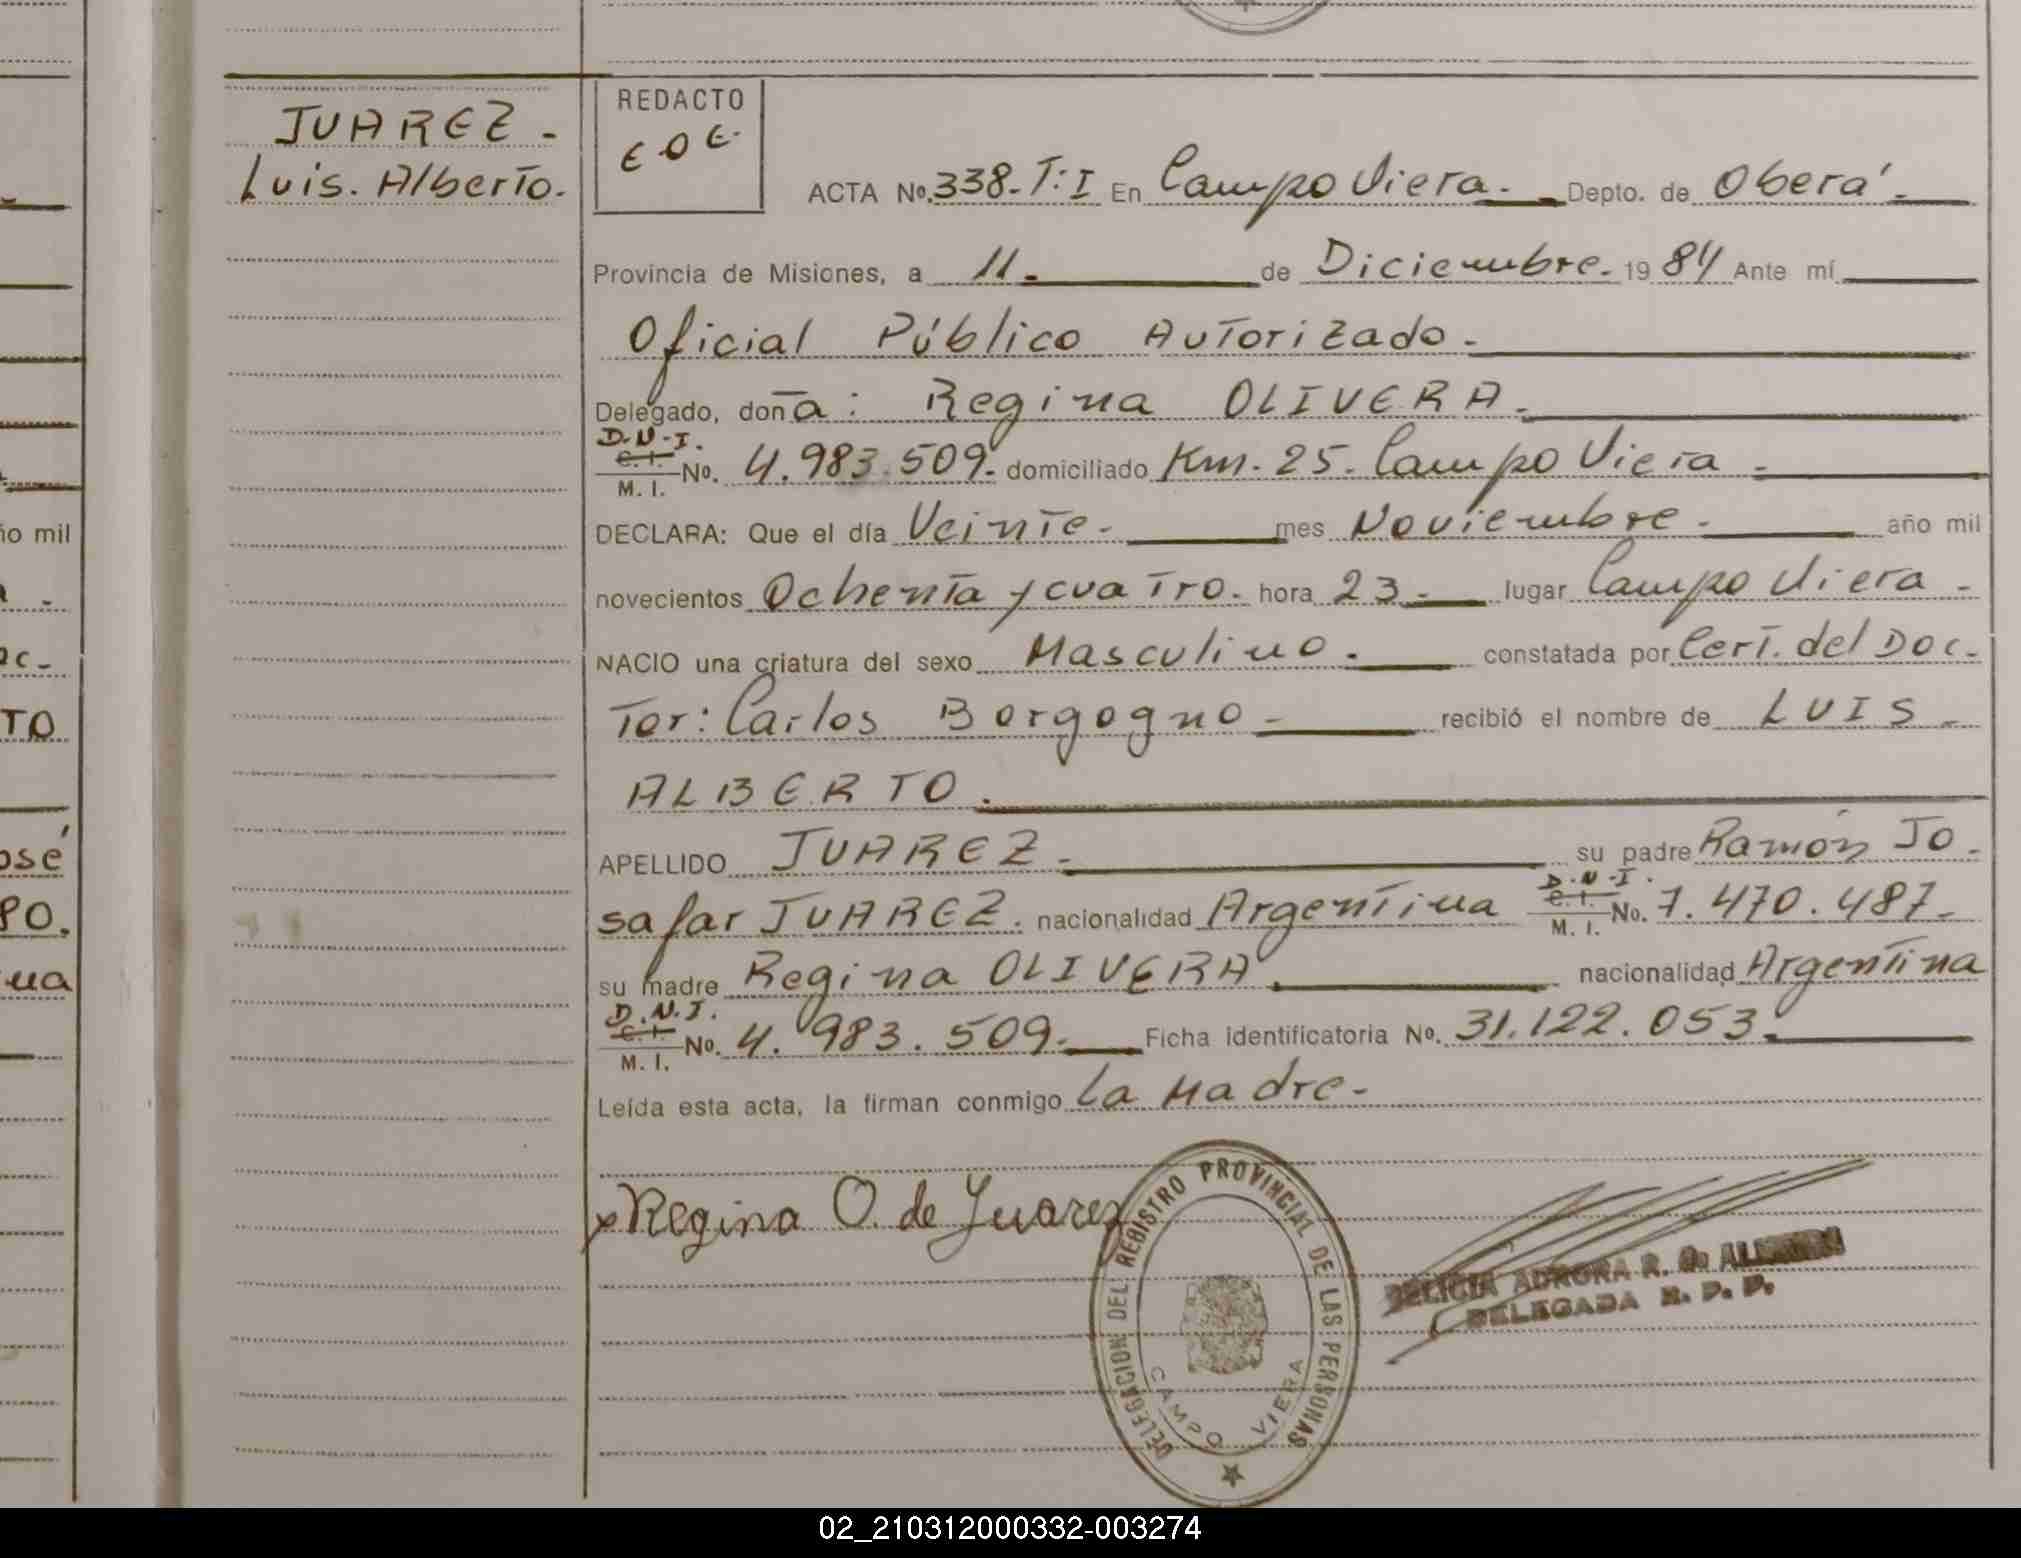 JUAREZ.
Luis. Alberto.
REDACTO
E O E.
ACTA No. 338. T: I En Campo Viera. Depto. de Oberá.
Provincia de Misiones, a 11. de Diciembre. 1984 Ante mí
Oficial Público Autorizado.
Delegado, doña: Regina OLIVERA.
D.N.I.
C. I. No. 4.983.509. domiciliado Km. 25. Campo Viera.
M. I.
DECLARA: Que el día Veinte. mes Noviembre. año mil
novecientos Ochenta y cuatro. hora 23. lugar Campo Viera.
NACIO una criatura del sexo Masculino. constatada por Cert. del Doc.
tor: Carlos Borgogno. recibió el nombre de LUIS.
ALBERTO.
APELLIDO JUAREZ. su padre Ramón Jo.
D.N.I.
safar JUAREZ. nacionalidad Argentina C. I. No. 7.470.487.
M. I.
su madre Regina OLIVERA nacionalidad Argentina
D.N.I.
C. I. No. 4.983.509. Ficha identificatoria No. 31.122.053.
M. I.
Leída esta acta, la firman conmigo La Madre.
x Regina O. de Juarez
DELEGACION DEL REGISTRO PROVINCIAL DE LAS PERSONAS
CAMPO VIERA
DELICIA AURORA R. D.
DELEGADA R. P. P.
ño mil
TO
osé
80.
02_210312000332-003274